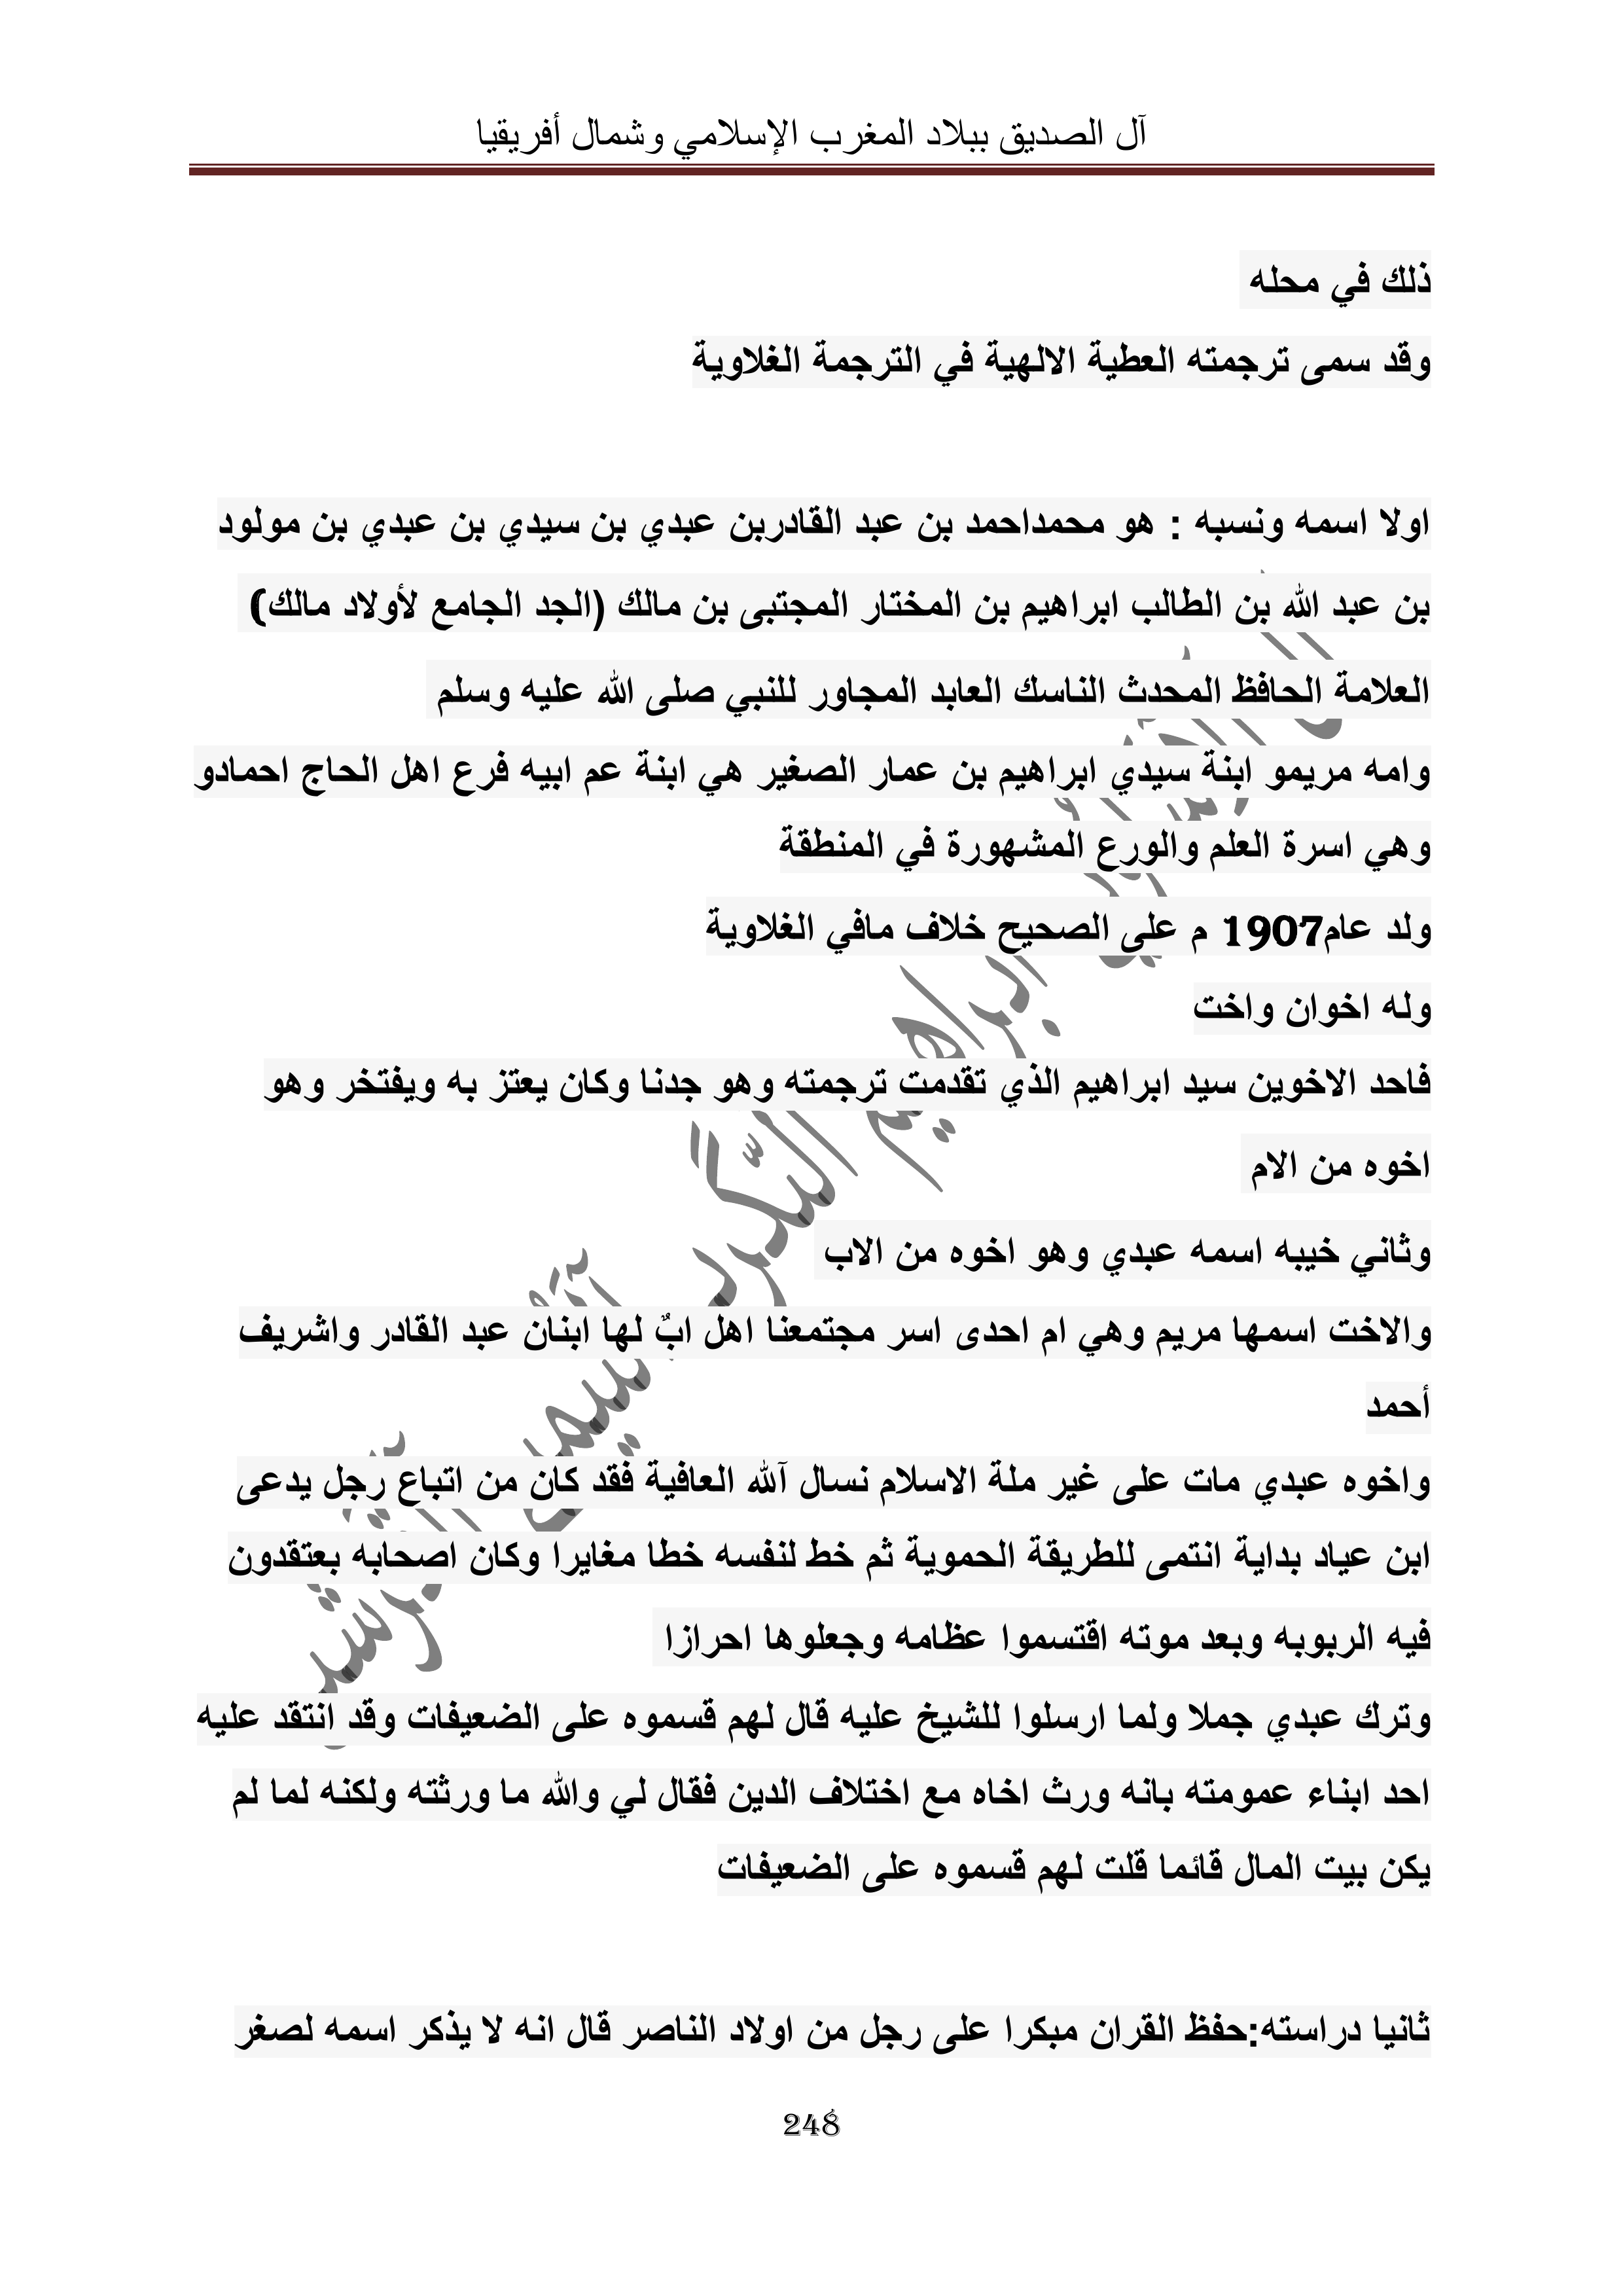 آل الصديق ببلاد المغرب الإسلامي وشمال أفريقيا
ذلك في محله
وقد سمى ترجمته العطية الالهية في الترجمة الغلاوية
اولا اسمه ونسبه : هو محمداحمد بن عبد القادربن عبدي بن سيدي بن عبدي بن مولود
بن عبد الله بن الطالب ابراهيم بن المختار المجتبى بن مالك (الجد الجامع لأولاد مالك)
العلامة الحافظ المحدث الناسك العابد المجاور للنبي صلى الله عليه وسلم
وامه مريمو ابنة سيدي ابراهيم بن عمار الصغير هي ابنة عم ابيه فرع اهل الحاج احمادو
وهي اسرة العلم والورع المشهورة في المنطقة
ولد عام1907 م على الصحيح خلاف مافي الغلاوية
وله اخوان واخت
فاحد الاخوين سيد ابراهيم الذي تقدمت ترجمته وهو جدنا وكان يعتز به ويفتخر وهو
اخوه من الام
وثاني خيبه اسمه عبدي وهو اخوه من الاب
والاخت اسمها مريم وهي ام احدى اسر مجتمعنا اهل ابٌ لها ابنان عبد القادر واشريف
أحمد
واخوه عبدي مات على غير ملة الاسلام نسال آلله العافية فقد كان من اتباع رجل يدعى
ابن عياد بداية انتمى للطريقة الحموية ثم خط لنفسه خطا مغايرا وكان اصحابه بعتقدون
فيه الربوبه وبعد موته اقتسموا عظامه وجعلوها احرازا
وترك عبدي جملا ولما ارسلوا للشيخ عليه قال لهم قسموه على الضعيفات وقد انتقد عليه
احد ابناء عمومته بانه ورث اخاه مع اختلاف الدين فقال لي والله ما ورثته ولكنه لما لم
يكن بيت المال قائما قلت لهم قسموه على الضعيفات
ثانيا دراسته:حفظ القران مبكرا على رجل من اولاد الناصر قال انه لا يذكر اسمه لصغر
248